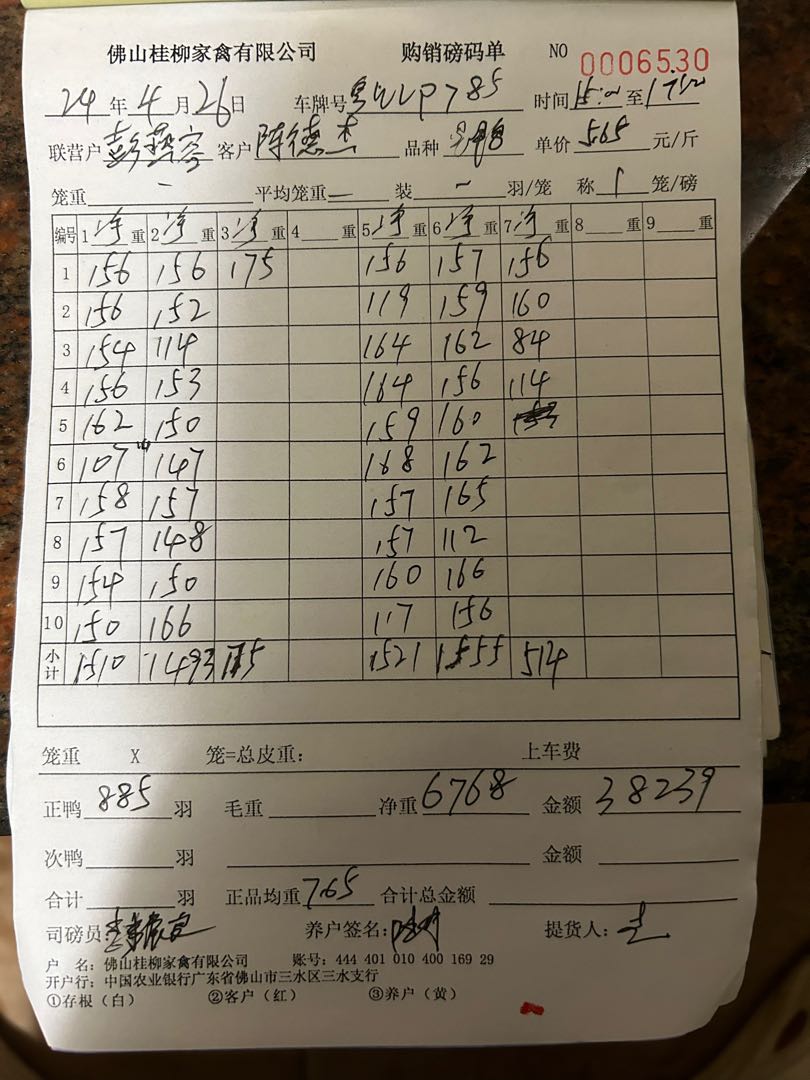 佛山桂柳家禽有限公司 购销磅码单 NO 0006530
24年4月26日 车牌号 P785 时间15:00至17:00
联营户 彭 客户 陈德杰 品种 单价 5.65 元/斤
笼重 — 平均笼重 — 装 — 羽/笼 称 1 笼/磅
编号 1净重 2净重 3净重 4重 5净重 6净重 7净重 8重 9重
1 156 156 175 156 157 156
2 156 152 119 159 160
3 154 114 164 162 84
4 156 153 164 156 114
5 162 150 159 160
6 107 147 168 162
7 158 157 157 165
8 157 148 157 112
9 154 150 160 166
10 150 166 117 156
小计 1510 1493 175 1521 1555 514
笼重 X 笼=总皮重: 上车费
正鸭 885 羽 毛重 净重 6768 金额 38239
次鸭 羽 金额
合计 羽 正品均重 7.65 合计总金额
司磅员: 养户签名: 提货人:
户 名: 佛山桂柳家禽有限公司 账号: 444 401 010 400 169 29
开户行: 中国农业银行广东省佛山市三水区三水支行
①存根（白） ②客户（红） ③养户（黄）